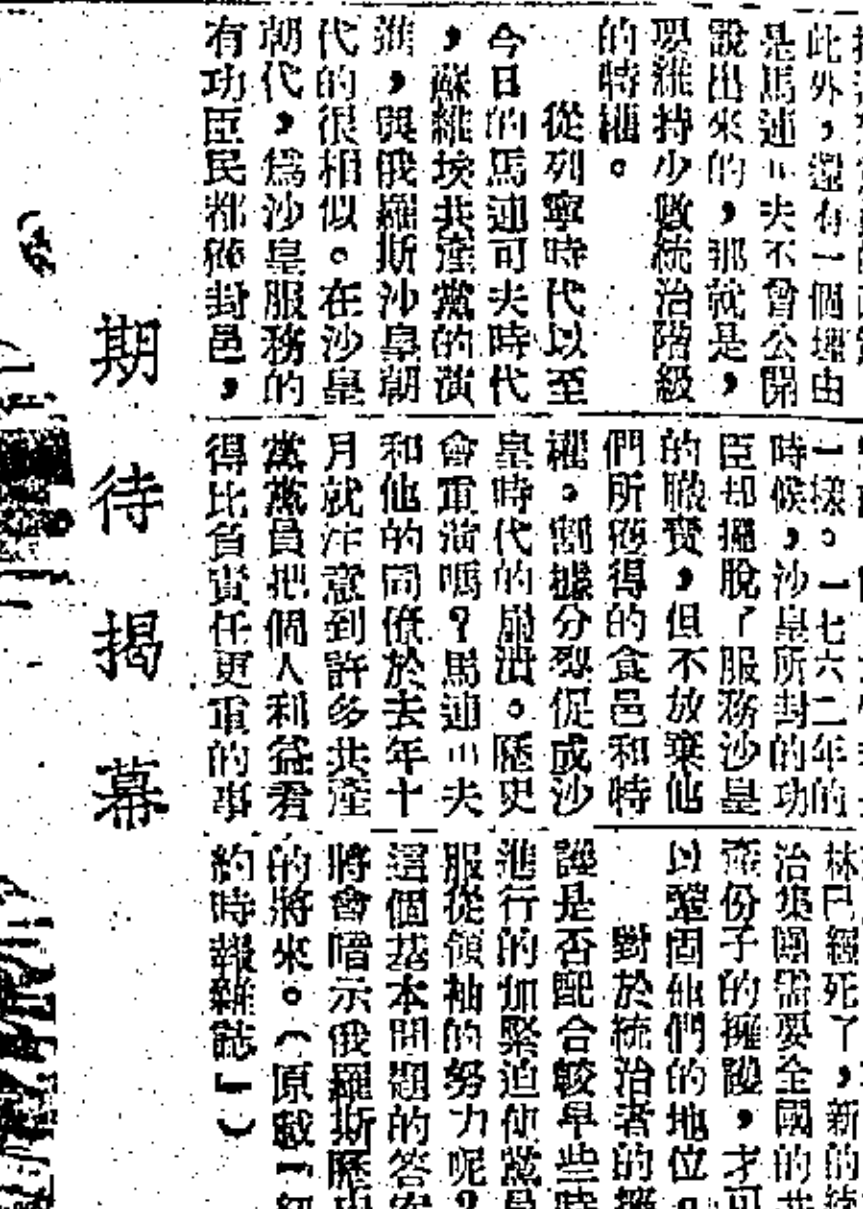 此外，還有一個理由
是馬連可夫不曾公開
說出來的，那就是，
要維持少數統治階級
的特權。
從列寧時代以至
今日的馬連可夫時代
，蘇維埃共產黨的演
進，與俄羅斯沙皇朝
代的很相似。在沙皇
朝代，爲沙皇服務的
有功臣民都獲封邑，
一樣。一七六二年的
時候，沙皇所封的功
臣却擺脫了服務沙皇
的職責，但不放棄他
們所獲得的食邑和特
權。割據分裂促成沙
皇時代的崩潰。歷史
會重演嗎？馬連可夫
和他的同僚於去年十
月就注意到許多共產
黨黨員把個人利益看
得比負責任更重的事
林已經死了，新的統
治集團需要全國的共
產份子的擁護，才可
以鞏固他們的地位。
對於統治者的擁
護是否配合較早些時
進行的加緊迫使黨員
服從領袖的努力呢？
這個基本問題的答案
將會暗示俄羅斯歷史
的將來。（原載「紐
約時報雜誌」）
期待揭幕